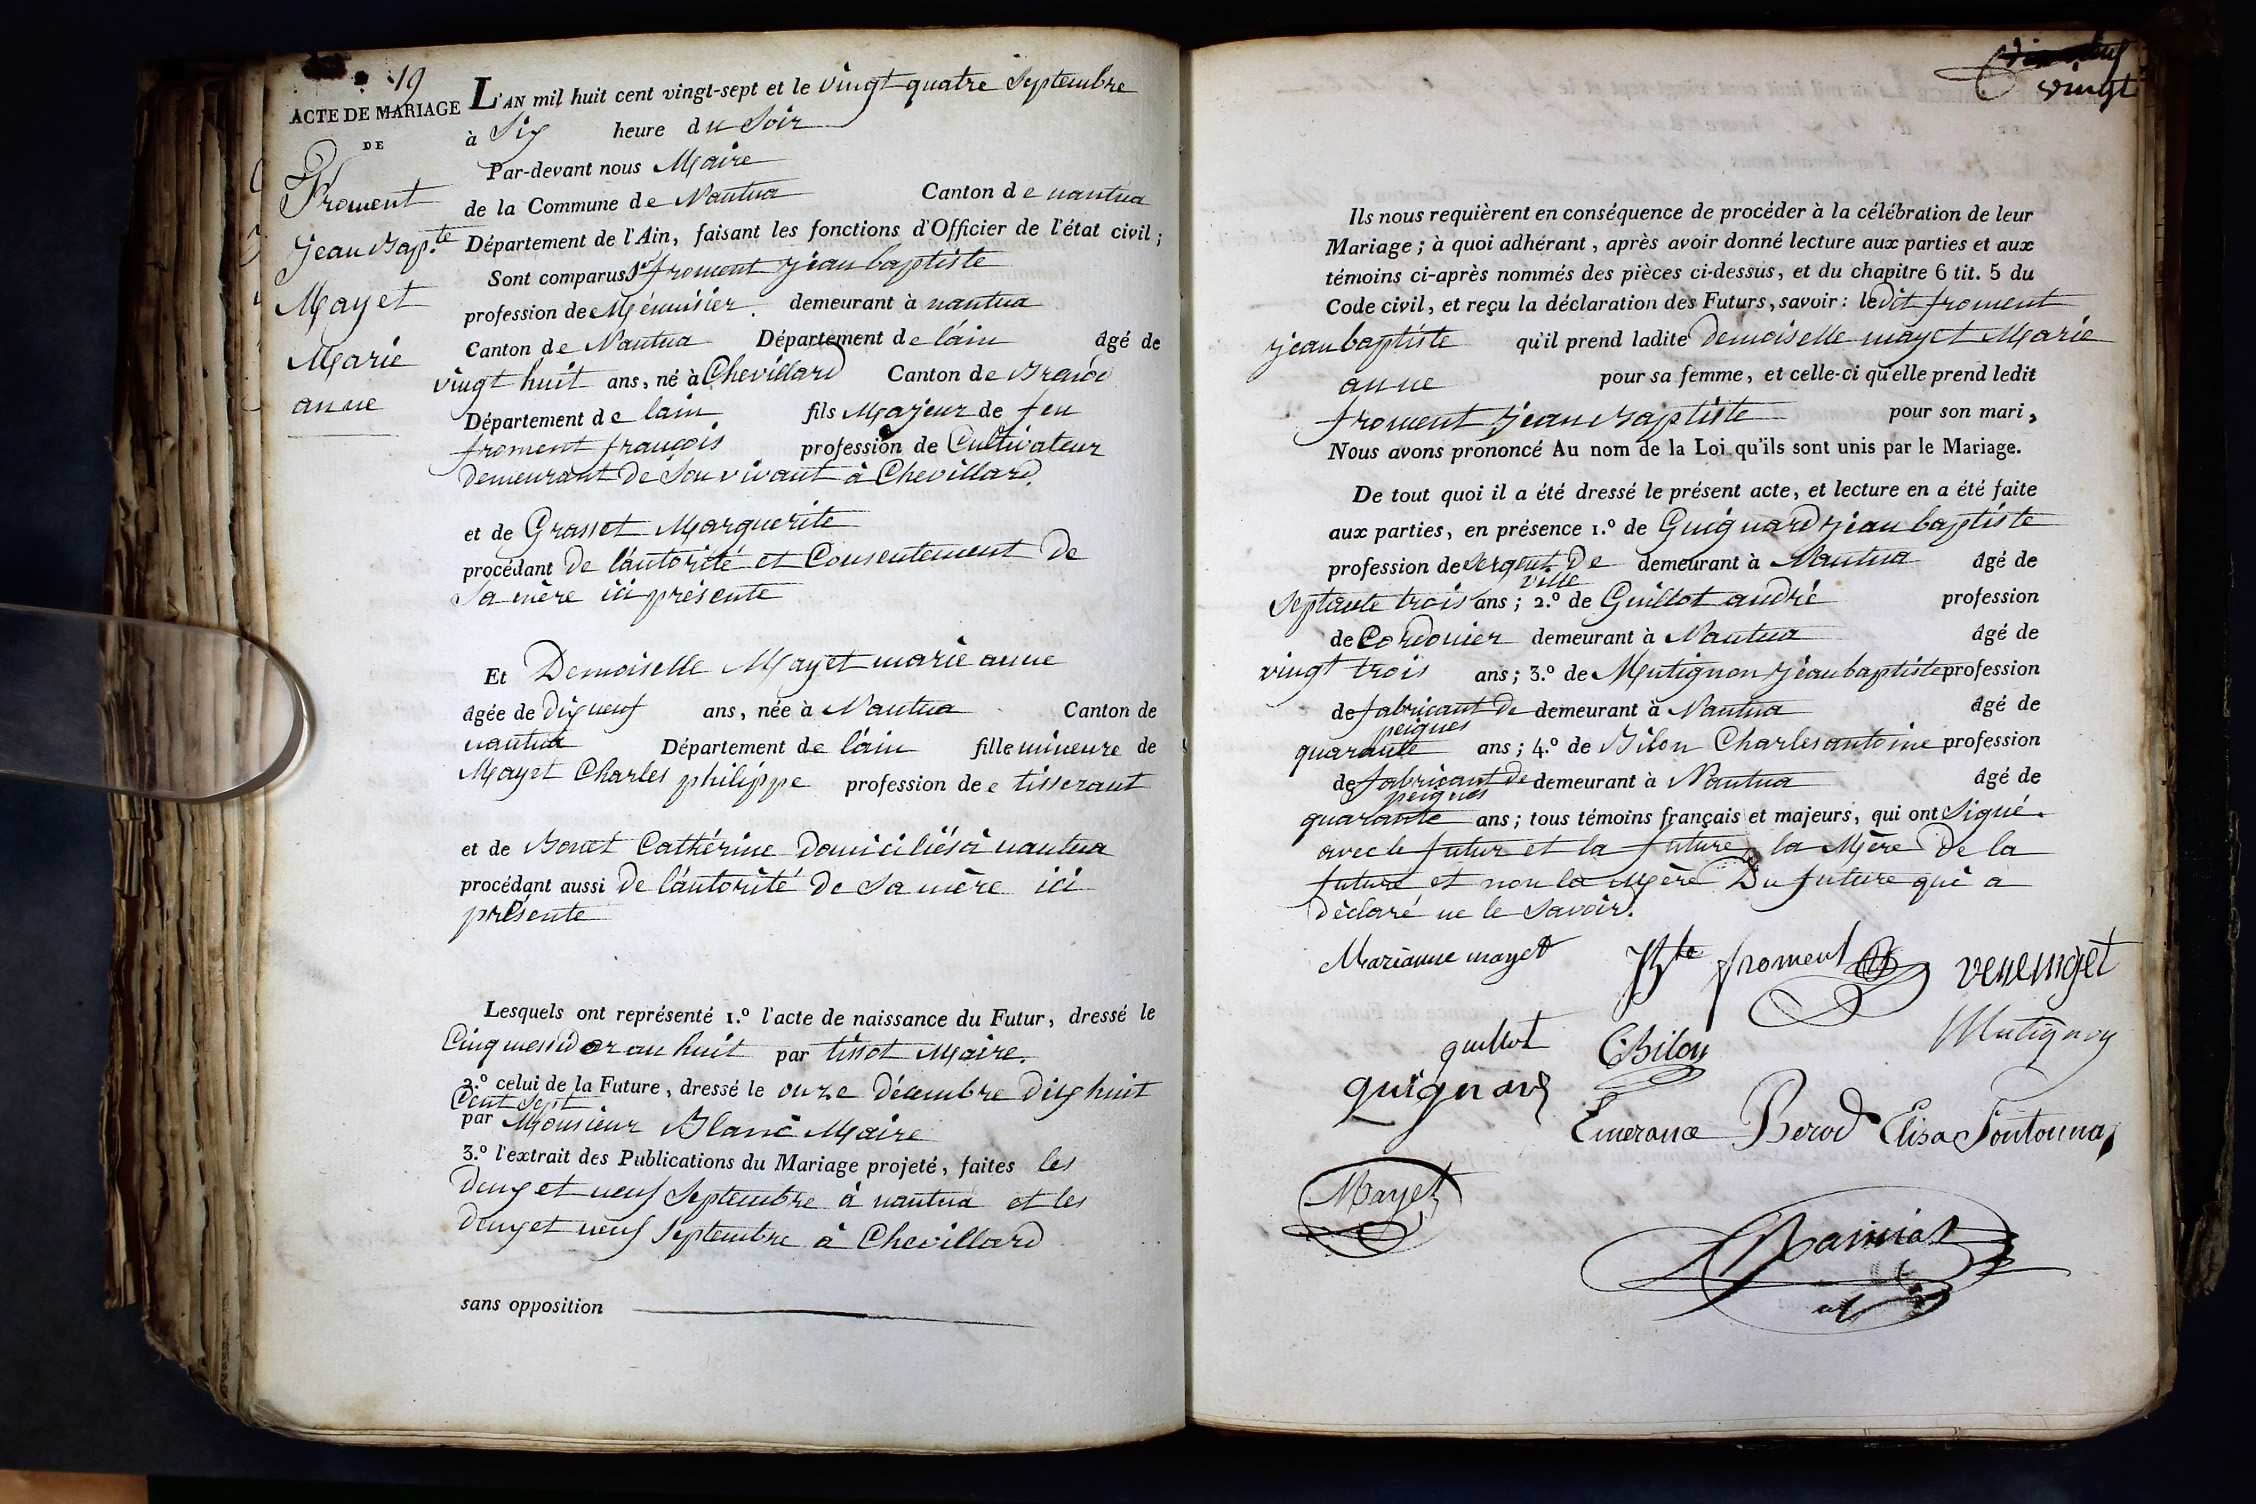 19
ACTE DE MARIAGE
DE
Froment
Jean Bap.te
Mayet
Marie
anne
L'AN mil huit cent vingt-sept et le vingt quatre Septembre
à Six heure du Soir
Par-devant nous Maire
de la Commune de Nantua Canton de nantua
Département de l'Ain, faisant les fonctions d'Officier de l'état civil;
Sont comparus Sr froment jean baptiste
profession de Ménuisier demeurant à nantua
Canton de Nantua Département de láin âgé de
vingt huit ans, né à Chevillard Canton de
Département de lain fils Majeur de feu
froment francois profession de Cultivateur
demeurant de Son vivant à Chevillard.
et de Grasset Marguerite
procédant de láutorité et Consentement de
Sa mère ici présente
Et Demoiselle Mayet marie anne
âgée de dix neuf ans, née à Nantua Canton de
nantua Département de láin fille mineure de
Mayet Charles philippe profession de e tisserant
et de Bonet Cathérine domiciliés à nantua
procédant aussi de láutorité de Sa mère ici
présente
Lesquels ont représenté 1.º l'acte de naissance du Futur, dressé le
Cinq messidor an huit par tissot Maire.
2.º celui de la Future, dressé le onze décembre dix huit
Cent Sept
par Monsieur Blanc Maire
3.º l'extrait des Publications du Mariage projeté, faites les
deux et neuf Septembre à nantua et les
deux et neuf Septembre à Chevillard
sans opposition
vingt
Ils nous requièrent en conséquence de procéder à la célébration de leur
Mariage; à quoi adhérant, après avoir donné lecture aux parties et aux
témoins ci-après nommés des pièces ci-dessus, et du chapitre 6 tit. 5 du
Code civil, et reçu la déclaration des Futurs, savoir: ledit froment
jean baptiste qu'il prend ladite demoiselle mayet Marie
anne pour sa femme, et celle-ci qu'elle prend ledit
froment jean Baptiste pour son mari,
Nous avons prononcé Au nom de la Loi qu'ils sont unis par le Mariage.
De tout quoi il a été dressé le présent acte, et lecture en a été faite
aux parties, en présence 1.º de Guignard jean baptiste
profession de sergent de demeurant à Nantua âgé de
ville
Septante trois ans; 2.º de Guillot andré profession
de Cordonier demeurant à Nantua âgé de
vingt trois ans; 3.º de Mutignon jean baptiste profession
de fabricant de demeurant à Nantua âgé de
peignes
quarante ans; 4.º de Bilon Charles antoine profession
de fabricant de demeurant à Nantua âgé de
peignes
quarante ans; tous témoins français et majeurs, qui ont Signé.
avec le futur et la future, la Mère de la
future et non la mère Du future qui a
déclaré ne le Savoir.
Marianne mayet JBte froment
guillot CBilon Mutignon
guignard
Emerance Berod Elisa
Mayet